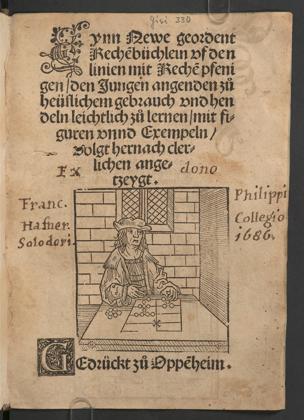 Givi 330
Eynn Newe geordent
Rechēbüchlein vf den
linien mit Rechē pfeni
gen / den Jungen angenden zů
heüslichem gebrauch vnd hen
deln leichtlich zů lernen / mit fi-
guren vnnd Exempeln /
Volgt hernach cler-
lichen ange-
tzeygt.
Ex dono
Franc. Philippi
Hafner. Collegio
Solodori. 1686.
Gedrückt zů Oppēheim.